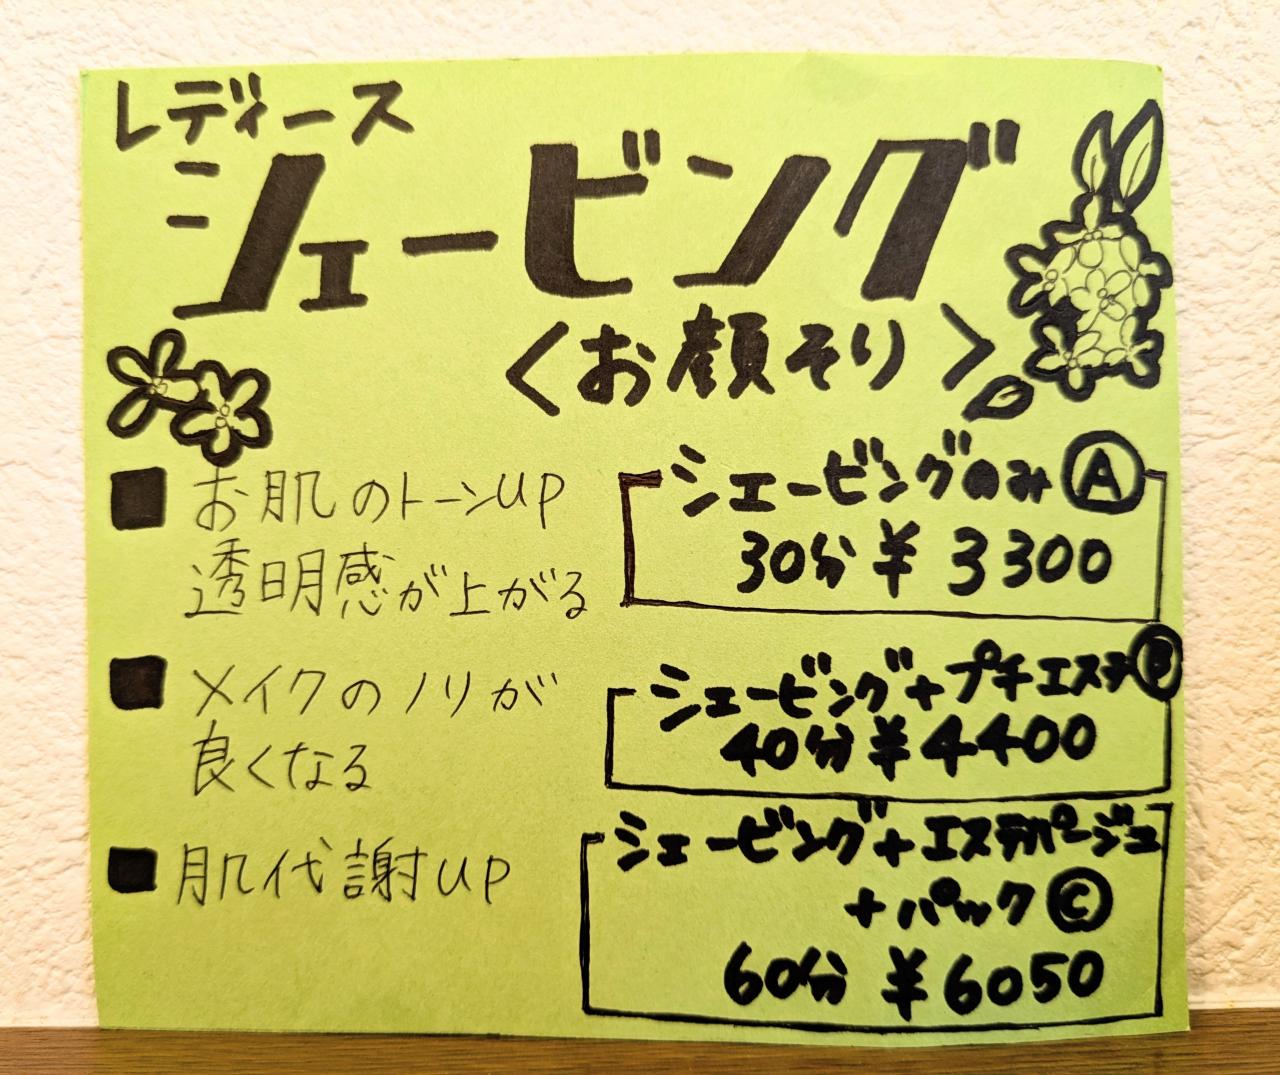 レディース
シェービング
<お顔そり>
■ お肌のトーンup
透明感が上がる
■ メイクのノリが
良くなる
■ 肌代謝up
シェービングのみ Ⓐ
30分 ¥3300
シェービング+プチエステ Ⓑ
40分 ¥4400
シェービング+エステパージュ
+パック Ⓒ
60分 ¥6050